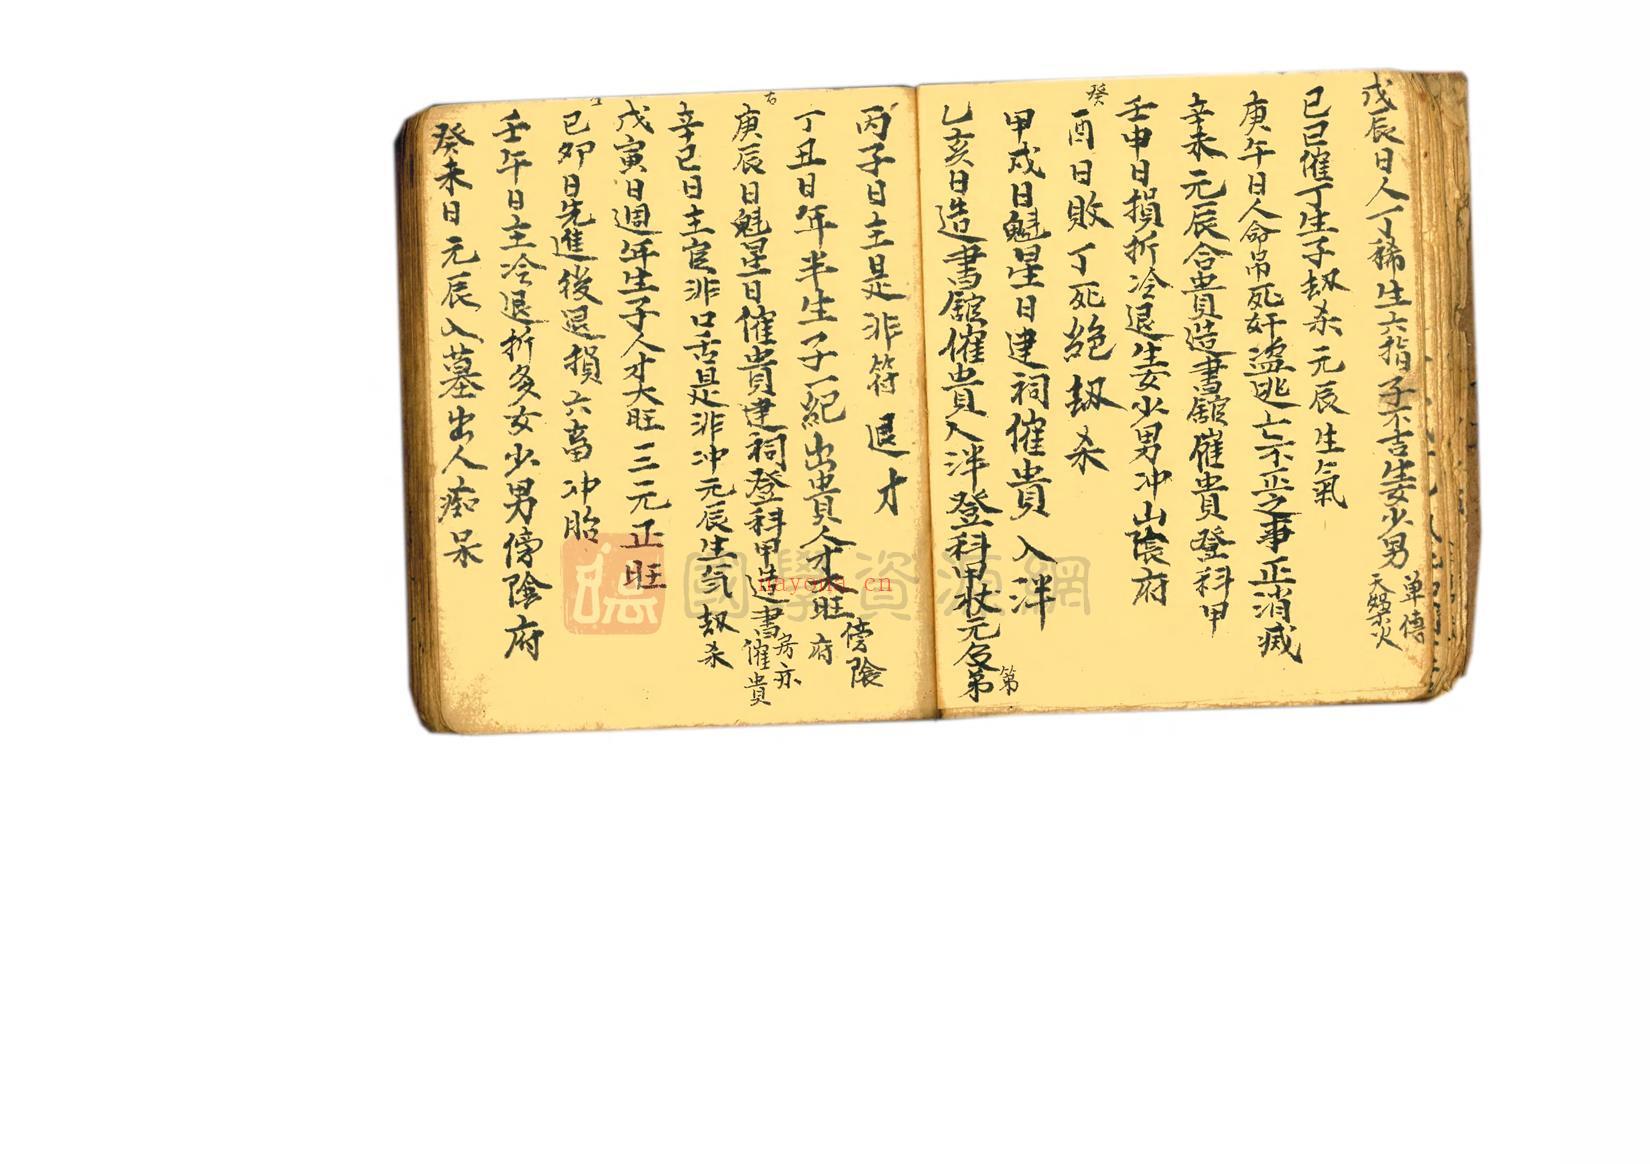 戊辰日人丁稀生六指子不吉生女少男单傳
天
火
己巳催丁生子刼杀元辰生氣
庚午日人命吊死奸盗逃亡不正之事正消减
辛未元辰合貴造書舘催貴登科甲
壬申日損折冷退生女少男冲山陰府
癸酉日敗丁死絕刼杀
甲戍日魁星日建祠催貴入泮
乙亥日造書舘催貴入泮登科甲状元及第
第
丙子日主是非符退才
傍陰府
丁丑日年半生子一紀出貴人才大旺
庚辰日魁星日催貴建祠登科甲造書房亦催貴
辛巳日主官非口舌是非冲元辰生气刼杀
戊寅日週年生子人才大旺三元正旺
己卯日先進後退損六畜冲胎
壬午日主冷退折多女少男傍陰府
癸未日元辰入墓出人痴呆
國學資源網
nayona.cn